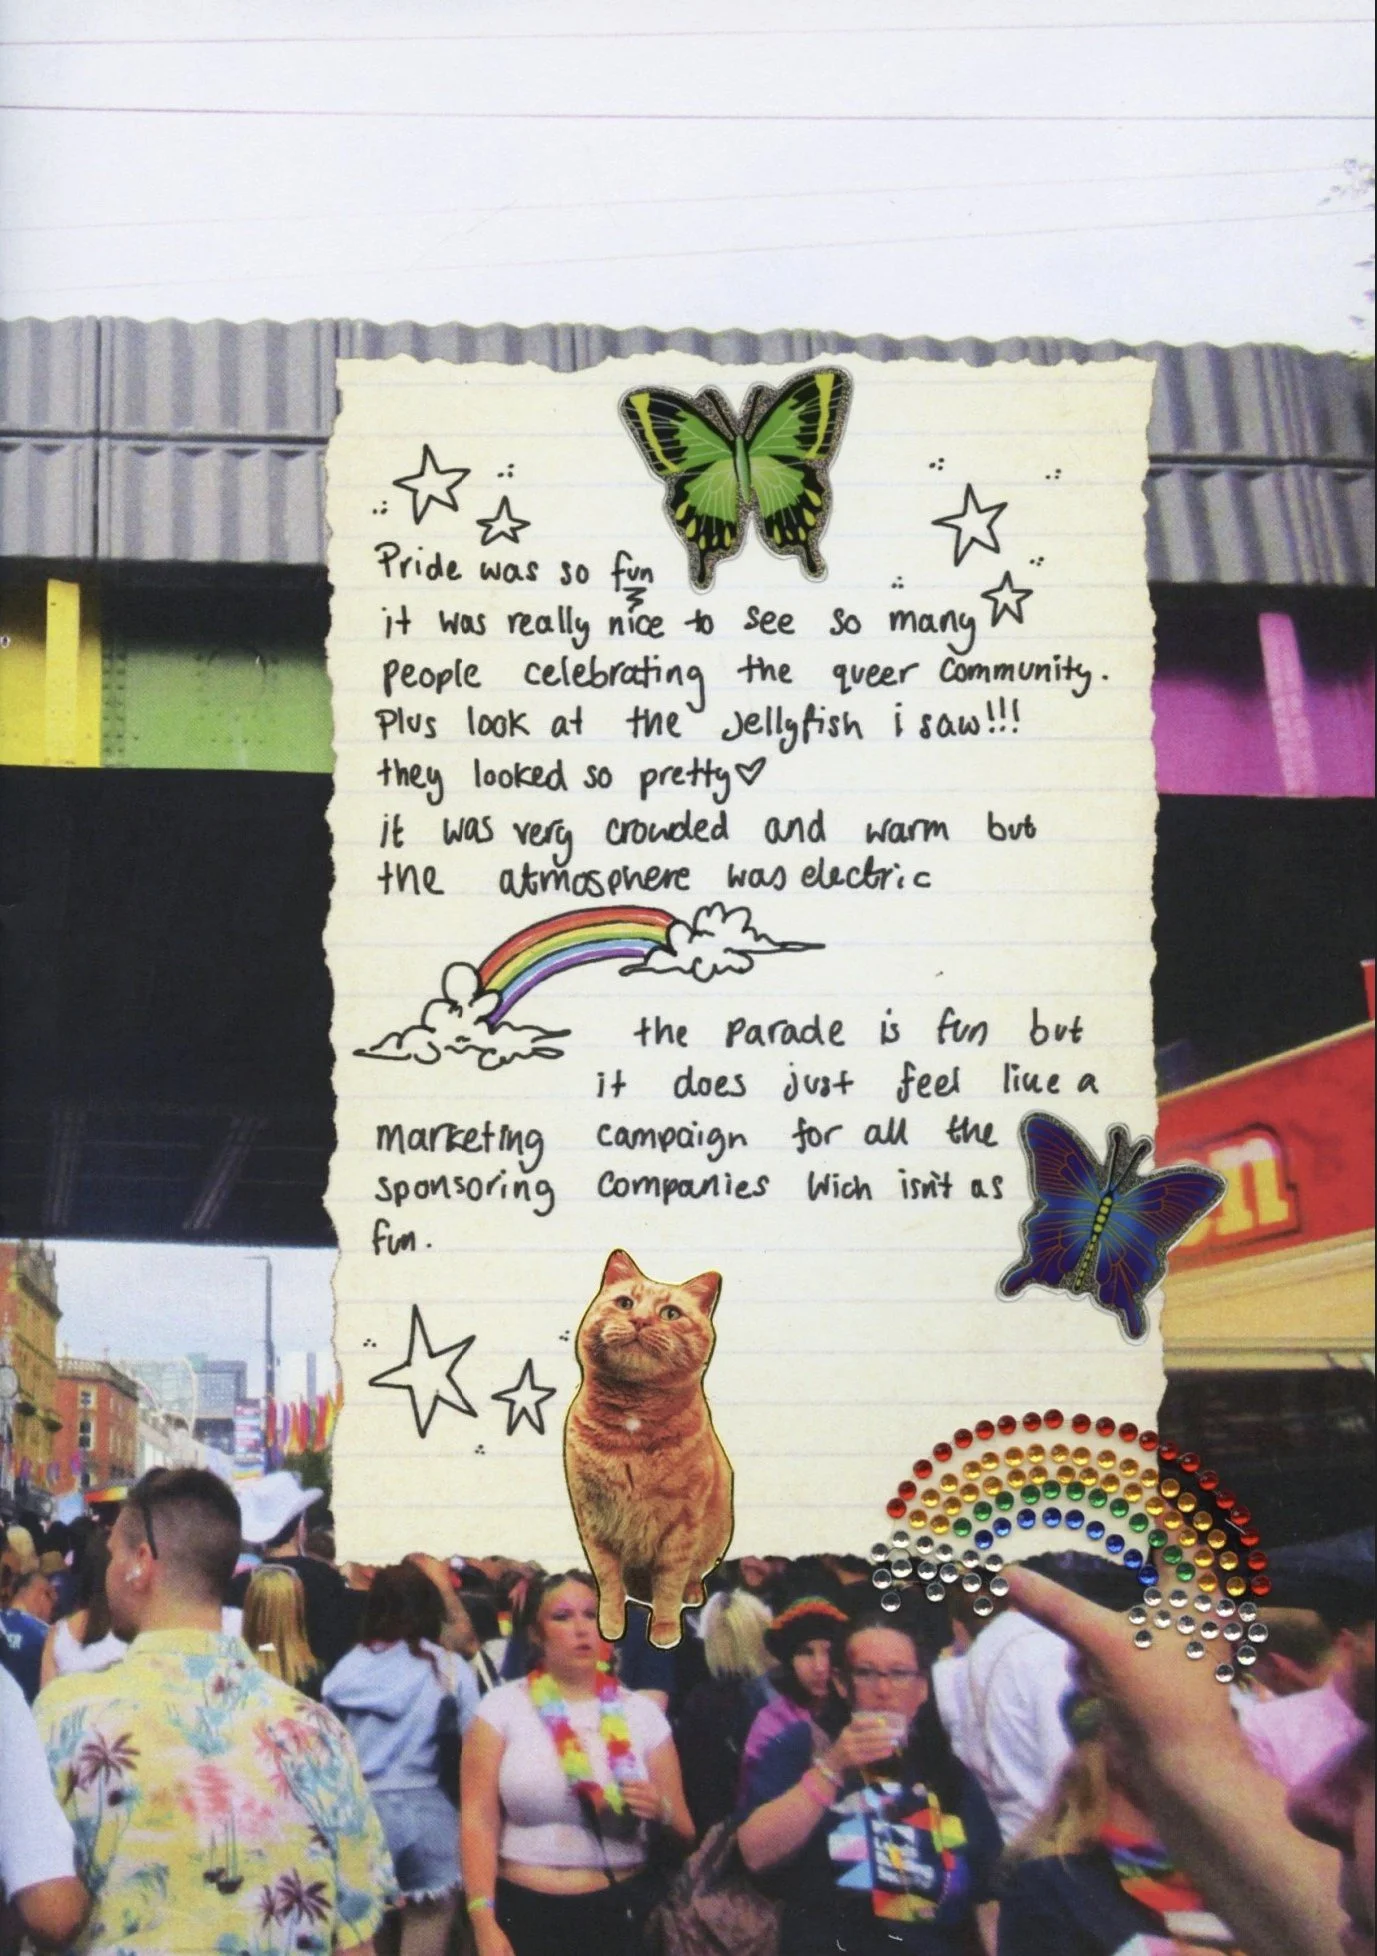 Pride was so fun
it was really nice to see so many
people celebrating the queer community.
Plus look at the jellyfish i saw!!!
they looked so pretty♡
it was very crowded and warm but
the atmosphere was electric
the parade is fun but
it does just feel like a
marketing campaign for all the
sponsoring companies wich isn't as
fun.
en